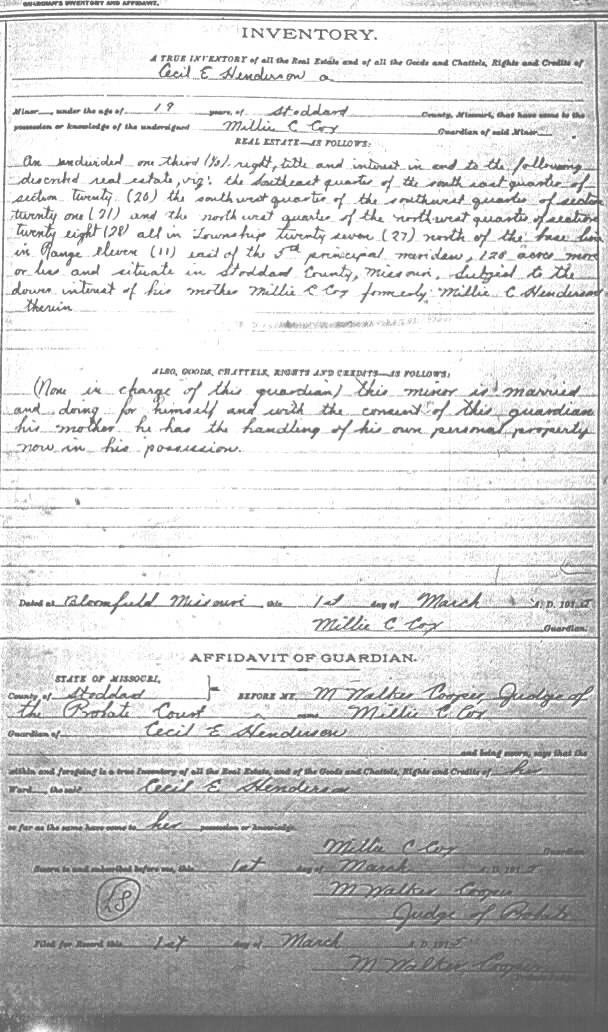 GUARDIAN'S INVENTORY AND AFFIDAVIT.
INVENTORY.
A TRUE INVENTORY of all the Real Estate and of all the Goods and Chattels, Rights and Credits of
Cecil E Henderson a
Minor, under the age of 19 years, of Stoddard County, Missouri, that have come to the
possession or knowledge of the undersigned Millie C Cox Guardian of said Minor
REAL ESTATE—AS FOLLOWS:
An undivided one third (1/3) right, title and interest in and to the following
described real estate, viz: the Southeast quarter of the south east quarter of
section twenty (20) the southwest quarter of the southwest quarter of section
twenty one (21) and the northwest quarter of the northwest quarter of section
twenty eight (28) all in Township twenty seven (27) north of the base line
in Range eleven (11) east of the 5th principal meridian, 120 acres more
or less and situate in Stoddard County, Missouri, Subject to the
dower interest of his mother Millie C Cox formerly Millie C Henderson
therein
ALSO, GOODS, CHATTELS, RIGHTS AND CREDITS—AS FOLLOWS:
(None in charge of this guardian) this minor is married
and doing for himself and with the consent of this guardian
his mother he has the handling of his own personal property
now in his possession.
Dated at Bloomfield Missouri, this 1st day of March A. D. 191
Millie C Cox Guardian.
AFFIDAVIT OF GUARDIAN.
STATE OF MISSOURI,
County of Stoddard } BEFORE ME, M Walker Cooper, Judge of
the Probate Court came Millie C Cox
Guardian of Cecil E Henderson
and being sworn, says that the
within and foregoing is a true Inventory of all the Real Estate, and of the Goods and Chattels, Rights and Credits of her
Ward, the said Cecil E Henderson
so far as the same have come to her possession or knowledge.
Millie C Cox Guardian
Sworn to and subscribed before me, this 1st day of March A. D. 1915
M Walker Cooper
Judge of Probate
28
Filed for Record this 1st day of March A. D. 1915
M Walker Cooper